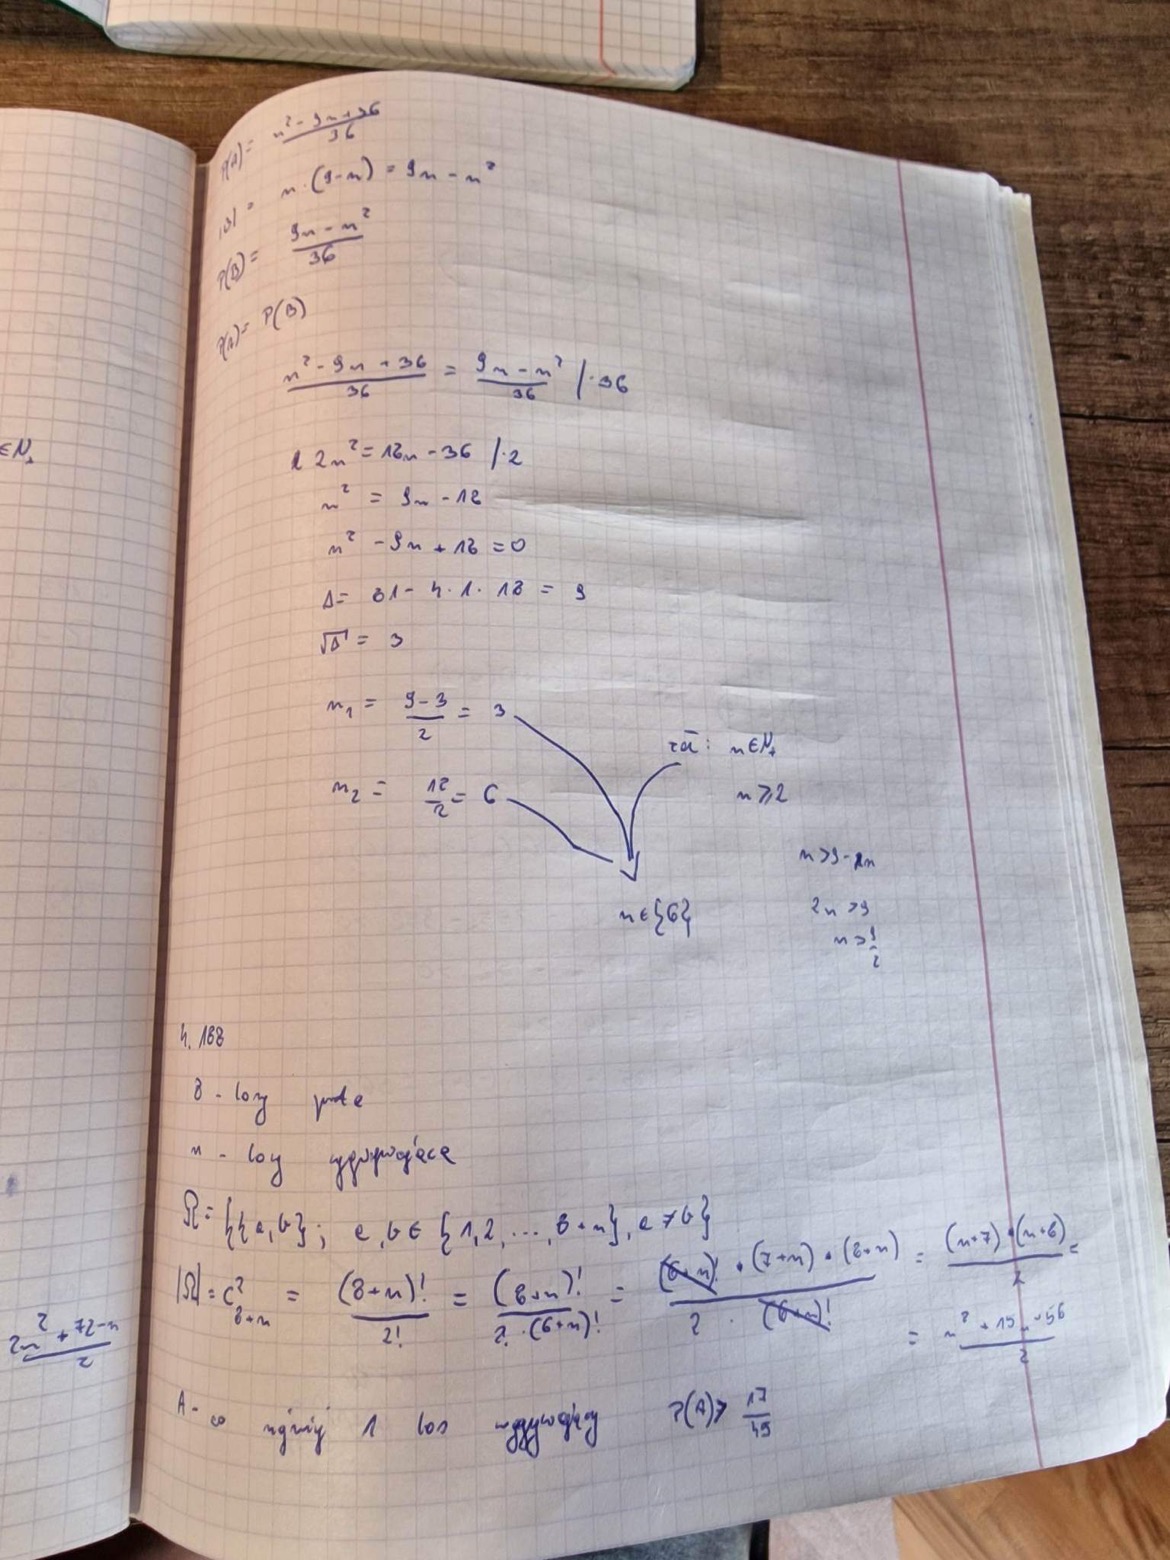 P(A) = n² - 9n + 36 / 36
|B| = n · (9-n) = 9n - n²
P(B) = 9n - n² / 36
P(A) = P(B)
n² - 9n + 36 / 36 = 9n - n² / 36 / · 36
2n² = 18n - 36 / · 2
∈N₊
n² = 9n - 18
n² - 9n + 18 = 0
Δ = 81 - 4 · 1 · 18 = 9
√Δ = 3
n₁ = 9-3 / 2 = 3
zał: n∈N₊
n₂ = 12 / 2 = 6
n ≥ 2
n > 9 - n
n∈{6}
2n > 9
n > 9 / 2
4.188
8 - losy puste
n - losy wygrywające
Ω = {{a, b}; a, b ∈ {1, 2, ..., 8+n}, a ≠ b}
|Ω| = C²₈₊ₙ = (8+n)! / 2! = (8+n)! / 2 · (6+n)! = (6+n)! · (7+n) · (8+n) / 2 · (6+n)! = (n+7) · (n+8) / 2 =
= n² + 15n + 56 / 2
2n² + 72 - n / 2
A - co najmniej 1 los wygrywający P(A) > 17 / 45